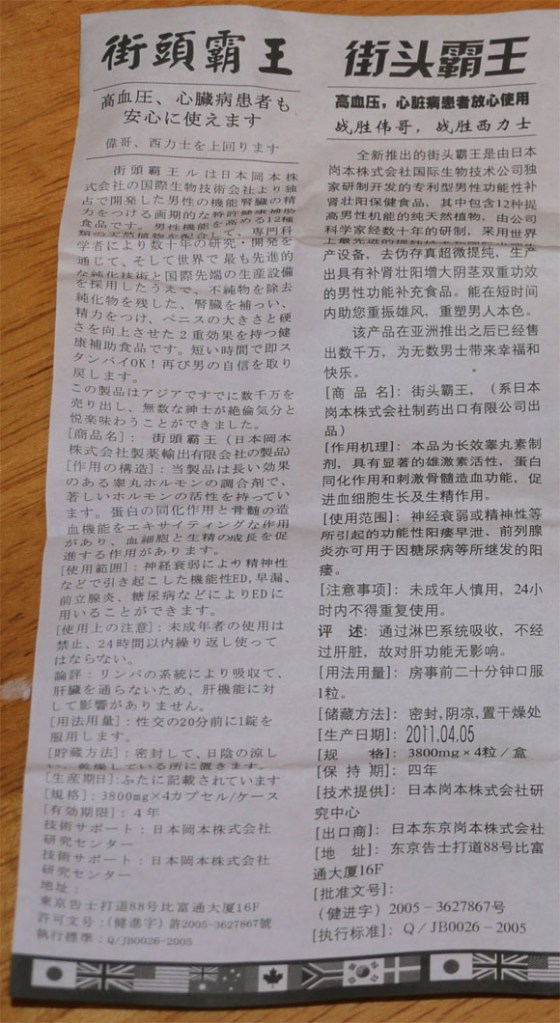 街頭霸王
高血圧、心臓病患者も
安心に使えます
偉哥、西力士を上回ります
街頭霸王ルは日本岡本株
式会社の国際生物技術会社より独
占で開発した男性の機能腎臓の精
力をつける画期的な特許健康補助
食品です。男性機能を高める12種
類の天然植物を配合して、専門科
学者により数十年の研究・開発を
通じて、そして世界で最も先進的
な純化技術と国際先端の生産設備
を採用したうえで、不純物を除去
純化物を残した、腎臓を補っい、
精力をつけ、ペニスの大きさと硬
さを向上させた2重効果を持つ健
康補助食品です。短い時間で即ス
タンバイOK！再び男の自信を取り
戻します。
この製品はアジアですでに数千万を
売り出し、無数な紳士が絶倫気分と
悦楽味わうことができました。
[商品名]： 街頭霸王（日本岡本
株式会社製薬輸出有限会社の製品）
[作用の構造]：当製品は長い効果
のある睾丸ホルモンの調合剤で、
著しいホルモンの活性を持ってい
ます。蛋白の同化作用と骨髄の造
血機能をエキサイティングな作用
があり、血細胞と生精の成長を促
進する作用があります。
[使用範囲]：神経衰弱により精神性
などで引き起こした機能性ED,早漏、
前立腺炎、糖尿病などによりEDに
用いることができます。
[使用上の注意]：未成年者の使用は
禁止、24時間以内繰り返し使って
はならない。
論評：リンパの系統により吸収て、
肝臓を通らないため、肝機能に対
して影響がありません。
[用法用量]：性交の20分前に1錠を
服用します。
[貯蔵方法]：密封して、日陰の涼し
い、乾燥している所に置きます。
[生産期日]:ふたに記載されています
[規格]：3800mg×4カプセル/ケース
[有効期限]：4年
技術サポート：日本岡本株式会社
研究センター
技術サポート：日本岡本株式会社
研究センター
地址：
東京告士打道88号比富通大厦16F
許可文号：(健進字) 許2005-3627867號
執行標準：Q/JB0026-2005
街头霸王
高血压，心脏病患者放心使用
战胜伟哥，战胜西力士
全新推出的街头霸王是由日本
岗本株式会社国际生物技术公司独
家研制开发的专利型男性功能性补
肾壮阳保健食品，其中包含12种提
高男性机能的纯天然植物，由公司
科学家经数十年的研制，采用世界
上最先进的提纯技术和国际尖端生
产设备，去伪存真超微提纯，生产
出具有补肾壮阳增大阴茎双重功效
的男性功能补充食品。能在短时间
内助您重振雄风，重塑男人本色。
该产品在亚洲推出之后已经售
出数千万，为无数男士带来幸福和
快乐。
[商 品 名]：街头霸王，（系日本
岗本株式会社制药出口有限公司出
品）
[作用机理]：本品为长效睾丸素制
剂，具有显著的雄激素活性，蛋白
同化作用和刺激骨髓造血功能，促
进血细胞生长及生精作用。
[使用范围]：神经衰弱或精神性等
所引起的功能性阳痿早泄、前列腺
炎亦可用于因糖尿病等所继发的阳
痿。
[注意事项]：未成年人慎用，24小
时内不得重复使用。
评 述：通过淋巴系统吸收，不经
过肝脏，故对肝功能无影响。
[用法用量]：房事前二十分钟口服
1粒。
[储藏方法]：密封,阴凉,置干燥处
[生产日期]：2011.04.05
[规 格]：3800mg×4粒／盒
[保 持 期]：四年
[技术提供]：日本岗本株式会社研
究中心
[出口商]：日本东京岗本株式会社
[地 址]：东京告士打道88号比富
通大厦16F
[批准文号]：
（健进字）2005-3627867号
[执行标准]：Q／JB0026-2005